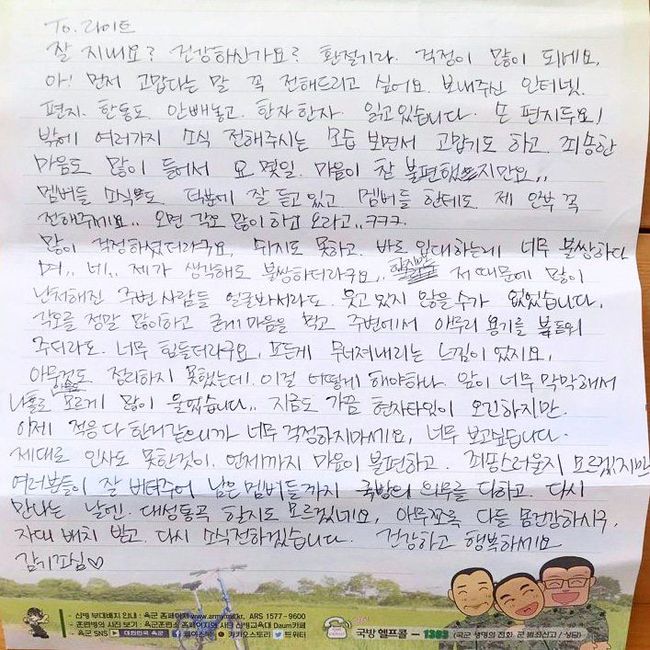 To. 라이트
잘 지내요? 건강하신가요? 환절기라. 걱정이 많이 되네요.
아! 먼저 고맙다는 말 꼭 전해드리고 싶어요. 보내주신 인터넷.
편지. 한통도 안빼놓고. 한자한자. 읽고있습니다. 손 편지두요!
밖에 여러가지 소식 전해주시는 모습 보면서 고맙기도 하고. 죄송한
마음도 많이 들어서 요 몇일. 마음이 참 불편했지만요,,
멤버들 소식도 덕분에 잘 듣고있고. 멤버들 한테도. 제 안부 꼭
전해주세요.. 오면 각오 많이하고 오라고..ㅋㅋㅋ.
많이 걱정하셨더라구요, 쉬지도 못하고. 바로 입대하는데 너무 불쌍하다
며.. 네.. 제가 생각해도 불쌍하더라구요,, 하지만 저 때문에 많이
난처해진 주변 사람들 얼굴봐서라도. 웃고 있지 않을수가 없었습니다.
각오를 정말 많이하고 굳게 마음을 먹고 주변에서 아무리 용기를 북돋와
주더라도. 너무 힘들더라구요, 모든게 무너져내리는 느낌이 있지요,
아무것도 정리하지 못했는데. 이걸 어떻게 해야하나 앞이 너무 막막해서
나홀로 모르게 많이 울었습니다.. 지금도 가끔 현자타임이 오긴하지만.
이제 적응 다 한거같으니까 너무 걱정하지마세요, 너무 보고싶습니다.
제대로 인사도 못한것이. 언제까지 마음이 불편하고. 죄송스러울지 모르겠지만
여러분들이 잘 버텨주어 남은 멤버들까지 국방의 의무를 다하고. 다시
만나는 날엔. 대성통곡 할지도 모르겠네요, 아무쪼록 다들 몸건강하시구,
자대 배치 받고. 다시 소식전하겠습니다. 건강하고 행복하세요
감기조심♡
- 신병 부대배치 안내 : 육군 홈페이지 www.army.mil.kr, ARS 1577-9600
- 훈련병의 사진 보기 : 육군훈련소 홈페이지와 사단 신병교육대 Daum카페
- 육군 SNS ▶ 대한민국 육군 페이스북 카카오스토리 트위터
국방헬프콜 - 1303 (국군 생명의 전화, 군 범죄신고 / 상담)